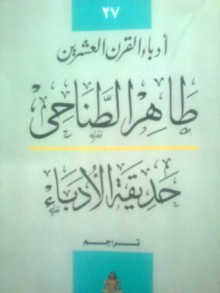 ٢٧
أدباء القرن العشرين
طَاهِر الطَّنَاحِى
حَديقة الأدبَاء
تراجم